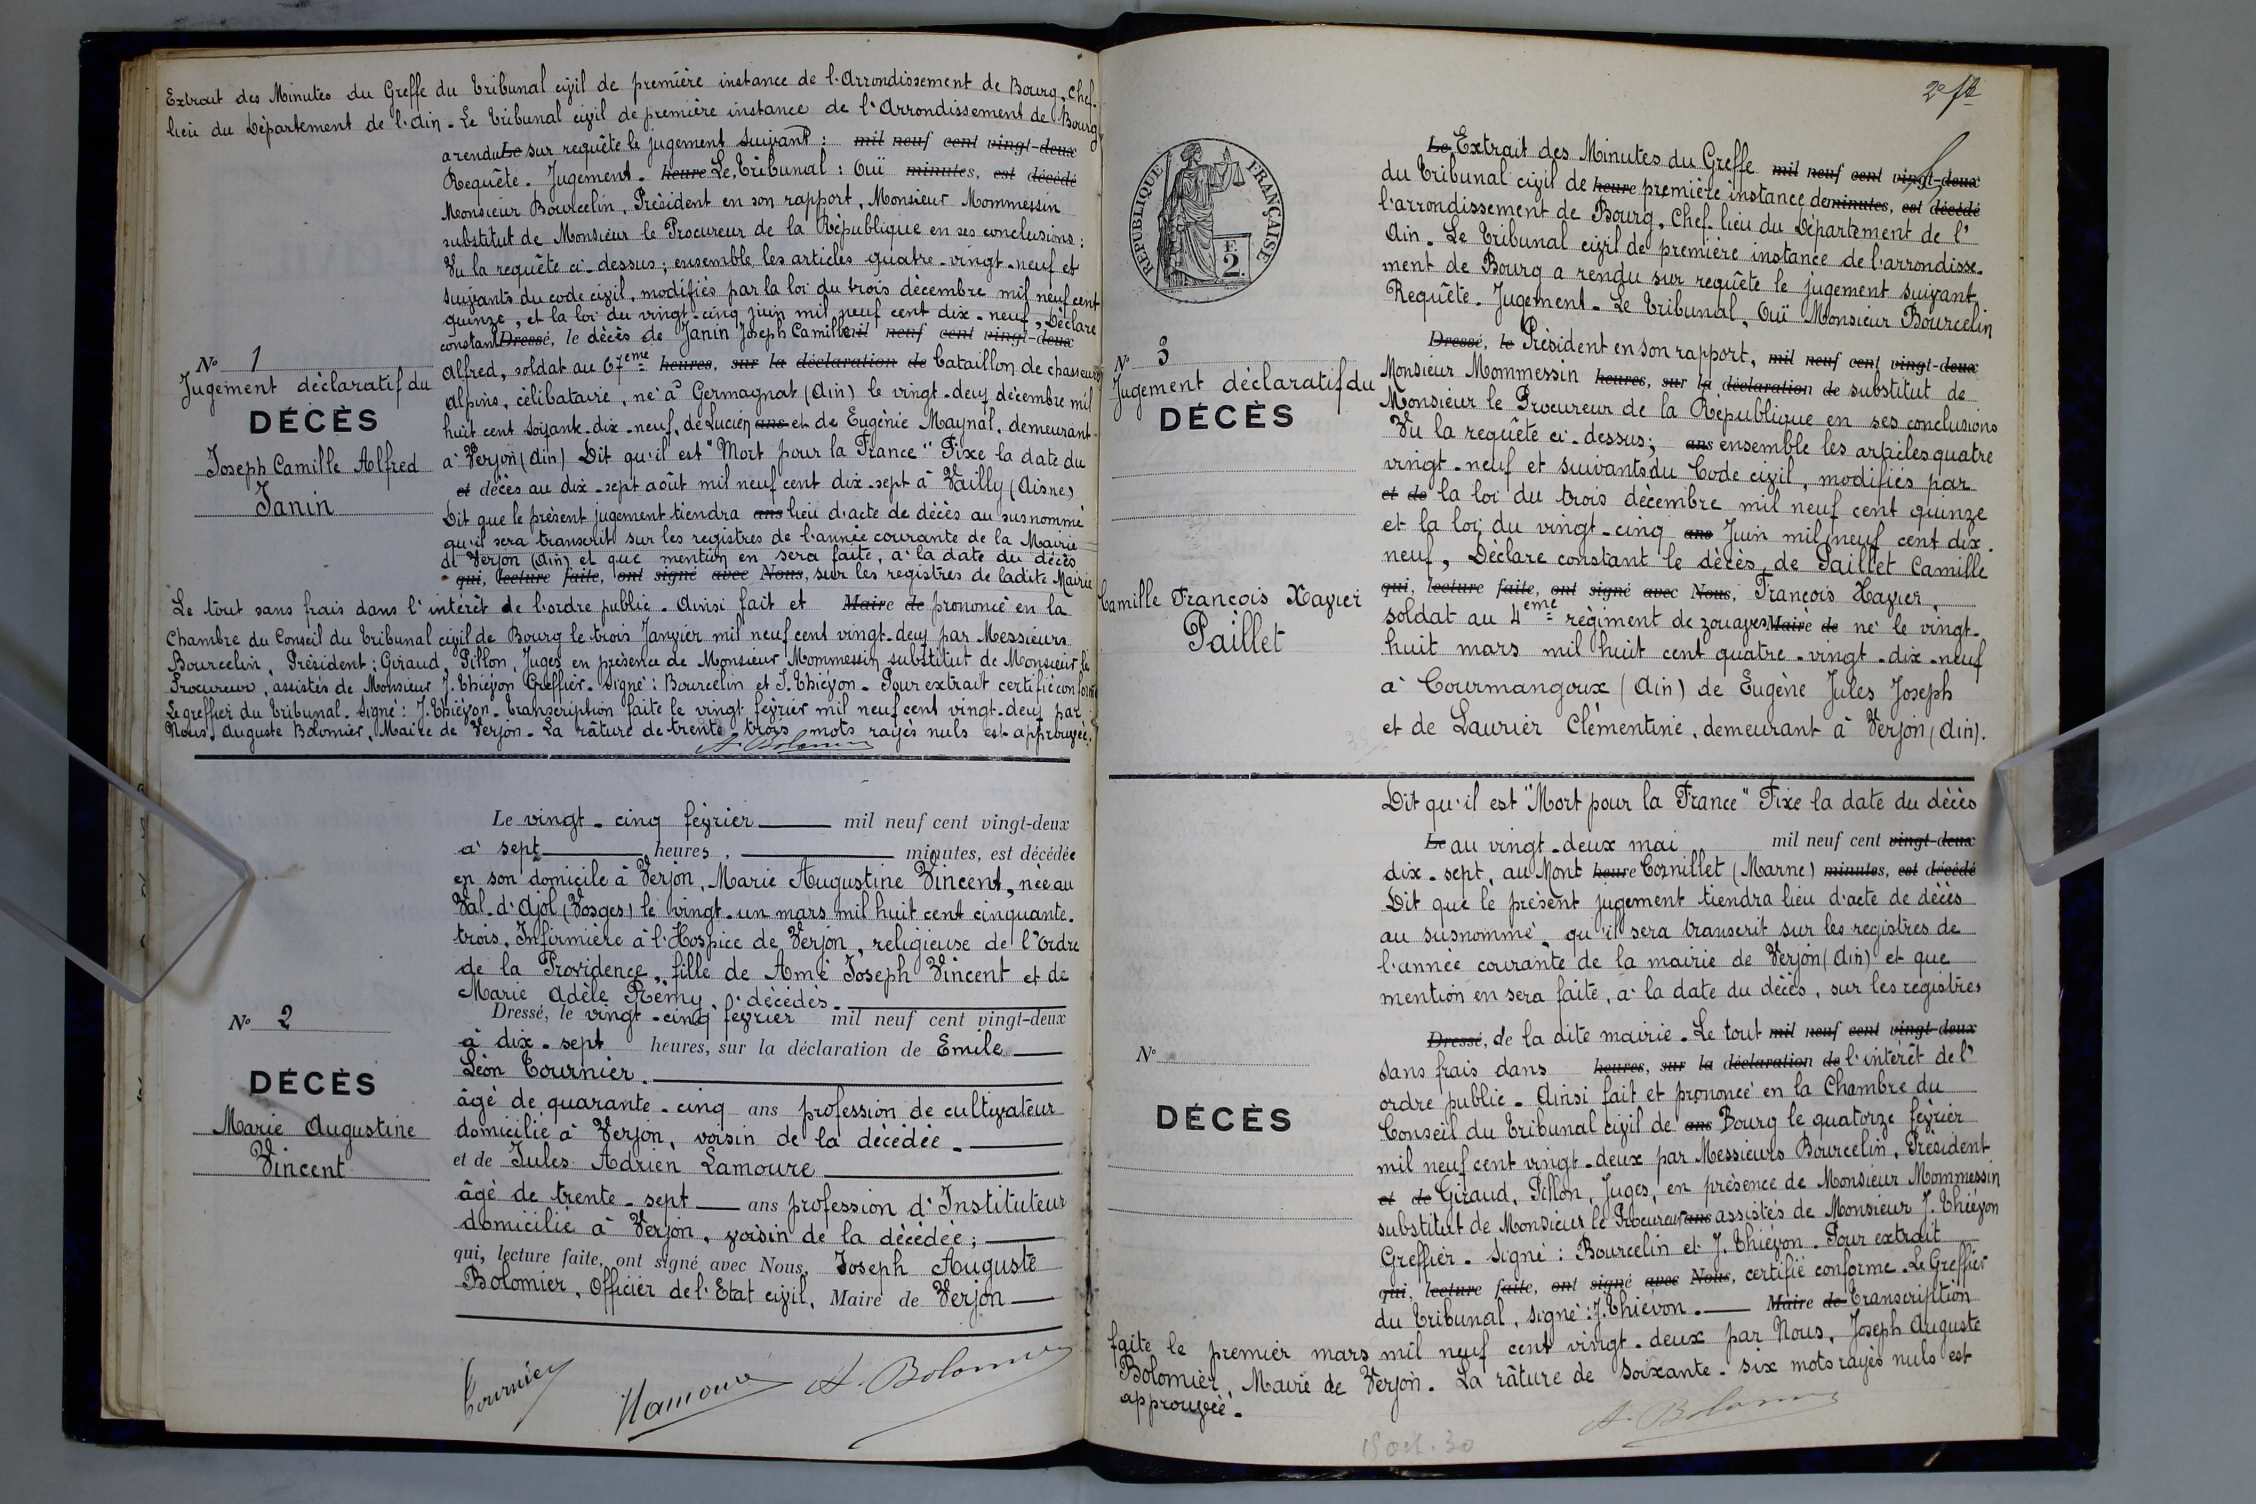 Extrait des Minutes du Greffe du Tribunal civil de première instance de l'Arrondissement de Bourg, Chef-
lieu du Département de l'Ain. Le Tribunal civil de première instance de l'Arrondissement de Bourg
a rendu Le sur requête le jugement suivant : mil neuf cent vingt-deux
Requête. Jugement. heure Le Tribunal : Ouï minutes, est décédé
Monsieur Bourcelin, Président en son rapport, Monsieur Mommessin
substitut de Monsieur le Procureur de la République en ses conclusions :
Vu la requête ci-dessus ; ensemble les articles quatre-vingt-neuf et
suivants du code civil, modifiés par la loi du trois décembre mil neuf cent
quinze, et la loi du vingt-cinq juin mil neuf cent dix-neuf, Déclare
constant Dressé, le décès de Janin Joseph Camille mil neuf cent vingt-deux
Alfred, soldat au 67ème heures, sur la déclaration de bataillon de chasseurs
Alpins, célibataire, né à Germagnat (Ain) le vingt-deux décembre mil
huit cent soixante-dix-neuf, de Lucien ans et de Eugénie Maynal, demeurant
à Verjon (Ain) Dit qu'il est "Mort pour la France" Fixe la date du
et décès au dix-sept août mil neuf cent dix-sept à Vailly (Aisne)
Dit que le présent jugement tiendra ans lieu d'acte de décès au susnommé
qu'il sera transcrit sur les registres de l'année courante de la Mairie
de Verjon (Ain) et que mention en sera faite, à la date du décès
qui, lecture faite, ont signé avec Nous, sur les registres de ladite Mairie
Le tout sans frais dans l'intérêt de l'ordre public. Ainsi fait et Maire de prononcé en la
Chambre du Conseil du Tribunal civil de Bourg le trois Janvier mil neuf cent vingt-deux par Messieurs
Bourcelin, Président ; Giraud, Pillon, Juges en présence de Monsieur Mommessin substitut de Monsieur le
Procureur, assistés de Monsieur J. Thiévon Greffier. Signé : Bourcelin et J. Thiévon. Pour extrait certifié conforme
Le greffier du Tribunal. Signé : J. Thiévon. Transcription faite le vingt février mil neuf cent vingt-deux par
Nous, Auguste Bolomier, Maire de Verjon. La râture de trente-trois mots rayés nuls est approuvée.
A. Bolomier
N° 1
Jugement déclaratif du
DÉCÈS
Joseph Camille Alfred
Janin
Le vingt-cinq février mil neuf cent vingt-deux
à sept heures, minutes, est décédée
en son domicile à Verjon, Marie Augustine Vincent, née au
Val-d'Ajol (Vosges) le vingt-un mars mil huit cent cinquante-
trois, Infirmière à l'Hospice de Verjon, religieuse de l'ordre
de la Providence, fille de Amé Joseph Vincent et de
Marie Adèle Rémy, décédés.
Dressé, le vingt-cinq février mil neuf cent vingt-deux
à dix-sept heures, sur la déclaration de Emile
Léon Tournier.
âgé de quarante-cinq ans profession de cultivateur
domicilié à Verjon, voisin de la décédée.
et de Jules Adrien Lamoure
âgé de trente-sept ans profession d'Instituteur
domicilié à Verjon, voisin de la décédée ;
qui, lecture faite, ont signé avec Nous, Joseph Auguste
Bolomier, Officier de l'Etat civil, Maire de Verjon
Tournier Lamoure A. Bolomier
N° 2
DÉCÈS
Marie Augustine
Vincent
RÉPUBLIQUE FRANÇAISE
F.
2
Le Extrait des Minutes du Greffe mil neuf cent vingt-deux
du Tribunal civil de heure première instance de minutes, est décédé
l'arrondissement de Bourg, Chef-lieu du Département de l'
Ain. Le Tribunal civil de première instance de l'arrondisse-
ment de Bourg a rendu sur requête le jugement suivant,
Requête. Jugement. Le Tribunal, Ouï Monsieur Bourcelin
Dressé, le Président en son rapport, mil neuf cent vingt-deux
Monsieur Mommessin heures, sur la déclaration de substitut de
Monsieur le Procureur de la République en ses conclusions
Vu la requête ci-dessus ; ans ensemble les articles quatre
vingt-neuf et suivants du Code civil, modifiés par
et de la loi du trois décembre mil neuf cent quinze
et la loi du vingt-cinq ans Juin mil neuf cent dix-
neuf, Déclare constant le décès de Paillet Camille
qui, lecture faite, ont signé avec Nous, François Xavier,
soldat au 4ème régiment de zouaves Maire de né le vingt-
huit mars mil huit cent quatre-vingt-dix-neuf
à Courmangoux (Ain) de Eugène Jules Joseph
et de Laurier Clémentine, demeurant à Verjon (Ain).
N° 3
Jugement déclaratif du
DÉCÈS
Camille François Xavier
Paillet
Dit qu'il est "Mort pour la France" Fixe la date du décès
Le au vingt-deux mai mil neuf cent vingt-deux
dix-sept, au Mont heure Cornillet (Marne) minutes, est décédé
Dit que le présent jugement tiendra lieu d'acte de décès
au susnommé, qu'il sera transcrit sur les registres de
l'année courante de la mairie de Verjon (Ain) et que
mention en sera faite, à la date du décès, sur les registres
Dressé, de la dite mairie. Le tout mil neuf cent vingt-deux
sans frais dans heures, sur la déclaration de l'intérêt de l'
ordre public. Ainsi fait et prononcé en la Chambre du
Conseil du Tribunal civil de ans Bourg le quatorze février
mil neuf cent vingt-deux par Messieurs Bourcelin, Président
et de Giraud, Pillon, Juges, en présence de Monsieur Mommessin
substitut de Monsieur le Procureur ans assistés de Monsieur J. Thiévon
Greffier. Signé : Bourcelin et J. Thiévon. Pour extrait
qui, lecture faite, ont signé avec Nous, certifié conforme. Le Greffier
du Tribunal, signé : J. Thiévon. Maire de Transcription
faite le premier mars mil neuf cent vingt-deux par Nous, Joseph Auguste
Bolomier, Maire de Verjon. La râture de soixante-six mots rayés nuls est
approuvée.
A. Bolomier
N°
DÉCÈS
15 oct. 30